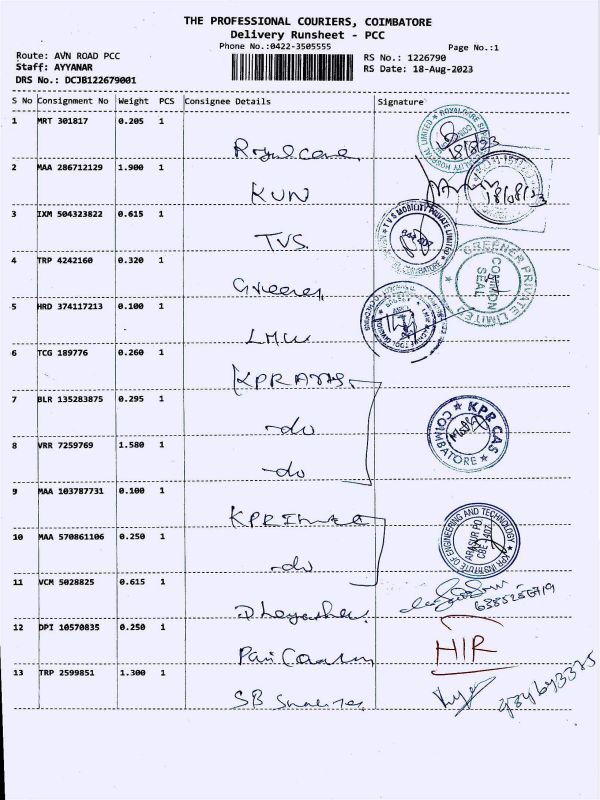 THE PROFESSIONAL COURIERS, COIMBATORE
Delivery Runsheet - PCC
Phone No.:0422-3505555
Page No.:1
Route: AVN ROAD PCC
RS No.: 1226790
Staff: AYYANAR
RS Date: 18-Aug-2023
DRS No.: DCJB122679001
S No Consignment No Weight PCS Consignee Details Signature
1 MRT 301817 0.205 1
Royal care 18/8/23
2 MAA 286712129 1.900 1
KUN 18/08/23
3 IXM 504323822 0.615 1
TVS TVS MOBILITY PRIVATE LIMITED COIMBATORE
4 TRP 4242160 0.320 1
Greener GREENER PRIVATE LIMITED COMMON SEAL
5 HRD 374117213 0.100 1
LMW
6 TCG 189776 0.260 1
KPR
7 BLR 135283875 0.295 1
-do KPR CAS COIMBATORE
8 VRR 7259769 1.580 1
-do
9 MAA 103787731 0.100 1
KPR
10 MAA 570861106 0.250 1
-do KPR INSTITUTE OF ENGINEERING AND TECHNOLOGY ARASUR PO CBE 1407
11 VCM 5028825 0.615 1
12 DPI 10570835 0.250 1
HIR
13 TRP 2599851 1.300 1
SB